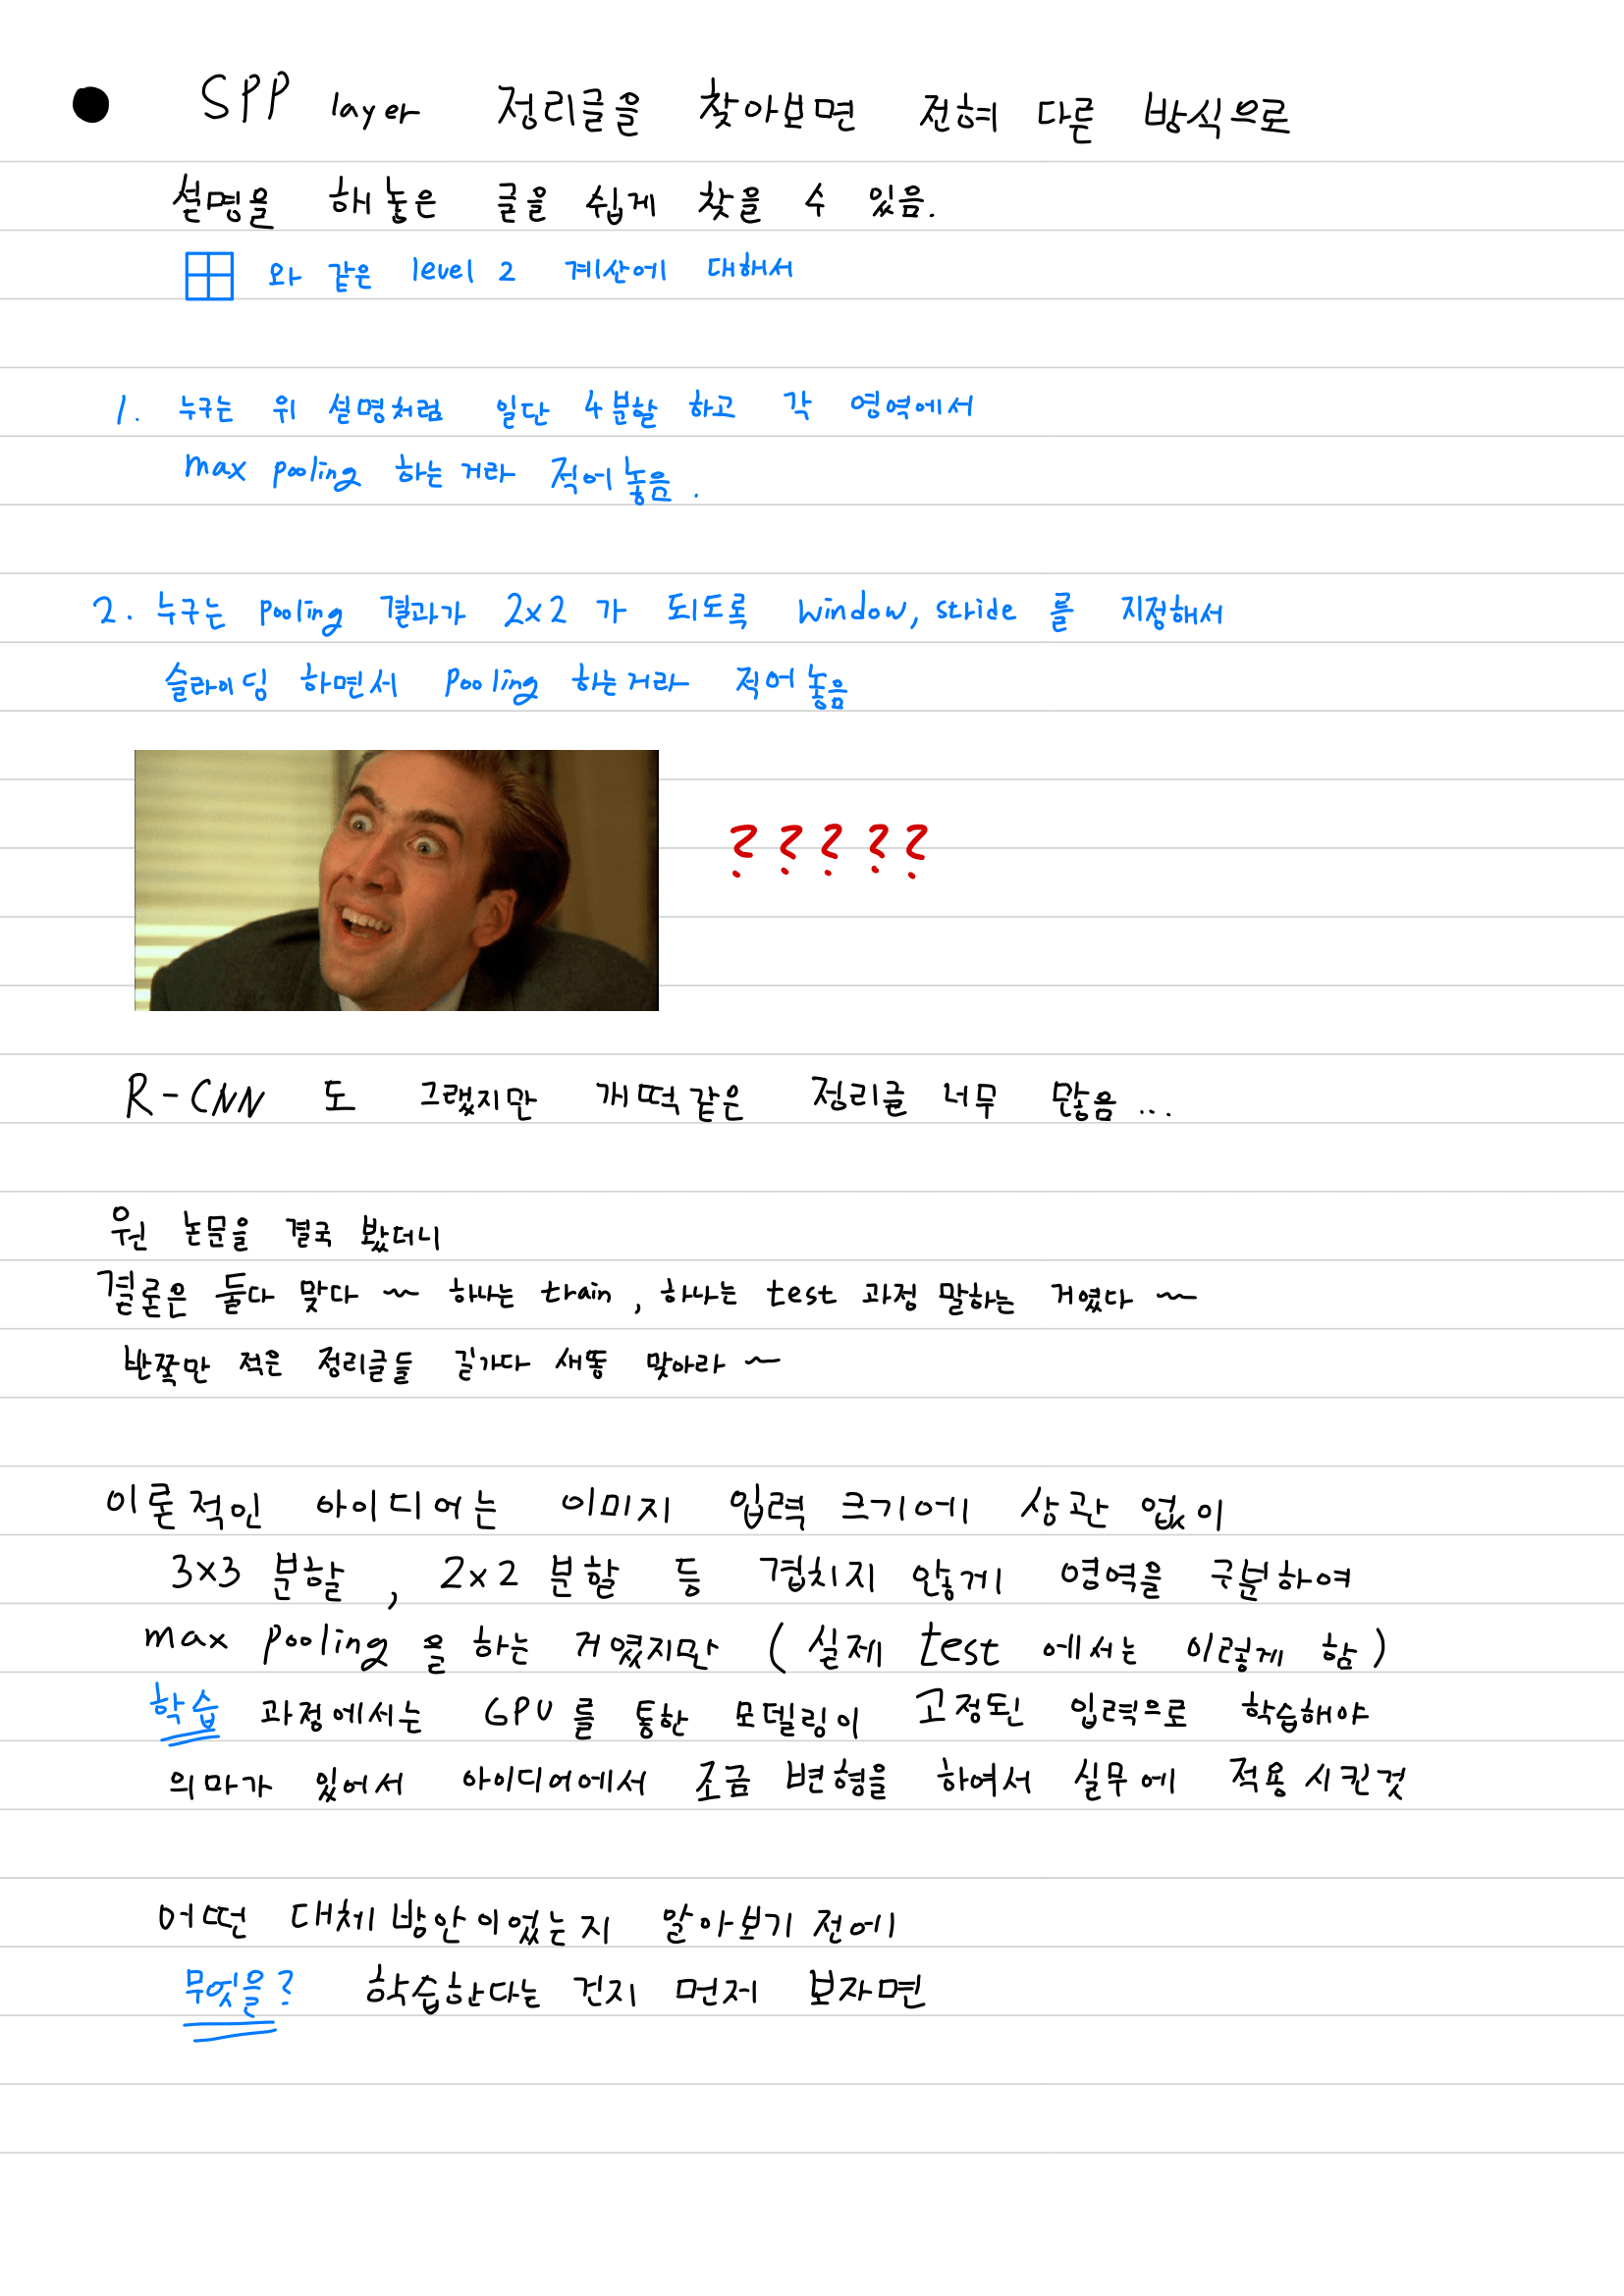 ● SPP layer 정리글을 찾아보면 전혀 다른 방식으로
설명을 해놓은 글을 쉽게 찾을 수 있음.
와 같은 level 2 계산에 대해서
1. 누구는 위 설명처럼 일단 4분할 하고 각 영역에서
max pooling 하는거라 적어놓음.
2. 누구는 pooling 결과가 2x2 가 되도록 window, stride 를 지정해서
슬라이딩 하면서 pooling 하는거라 적어놓음
?????
R-CNN 도 그랬지만 개떡같은 정리글 너무 많음...
원 논문을 결국 봤더니
결론은 둘다 맞다 ~ 하나는 train, 하나는 test 과정 말하는 거였다 ~
반쪽만 적은 정리글들 길가다 새똥 맞아라 ~
이론적인 아이디어는 이미지 입력 크기에 상관 없이
3x3 분할, 2x2 분할 등 겹치지 않게 영역을 구분하여
max pooling 을 하는 거였지만 (실제 test 에서는 이렇게 함)
학습 과정에서는 GPU를 통한 모델링이 고정된 입력으로 학습해야
의미가 있어서 아이디어에서 조금 변형을 하여서 실무에 적용시킨것
어떤 대체방안이었는지 알아보기 전에
무엇을? 학습한다는 건지 먼저 보자면